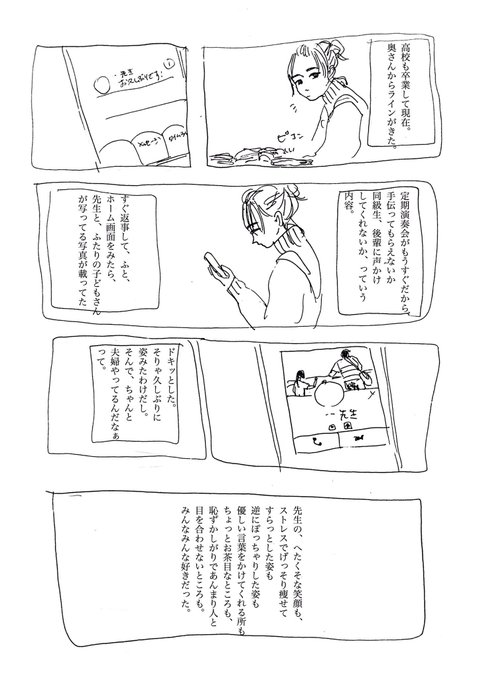 高校も卒業して現在。
奥さんからラインがきた。
ピコン
先生
お久しぶりです!
1
定期演奏会がもうすぐだから、
手伝ってもらえないか
同級生、後輩に声かけ
してくれないか、っていう
内容。
すぐ返事して、ふと、
ホーム画面をみたら、
先生と、ふたりの子どもさん
が写ってる写真が載ってた
先生
ドキッとした。
そりゃ久しぶりに
姿みたわけだし。
そんで、ちゃんと
夫婦やってるんだなぁ
って。
先生の、へたくそな笑顔も、
ストレスでげっそり痩せて
すらっとした姿も
逆にぽっちゃりした姿も
優しい言葉をかけてくれる所も
ちょっとお茶目なところも、
恥ずかしがりであんまり人と
目を合わせないところも。
みんなみんな好きだった。